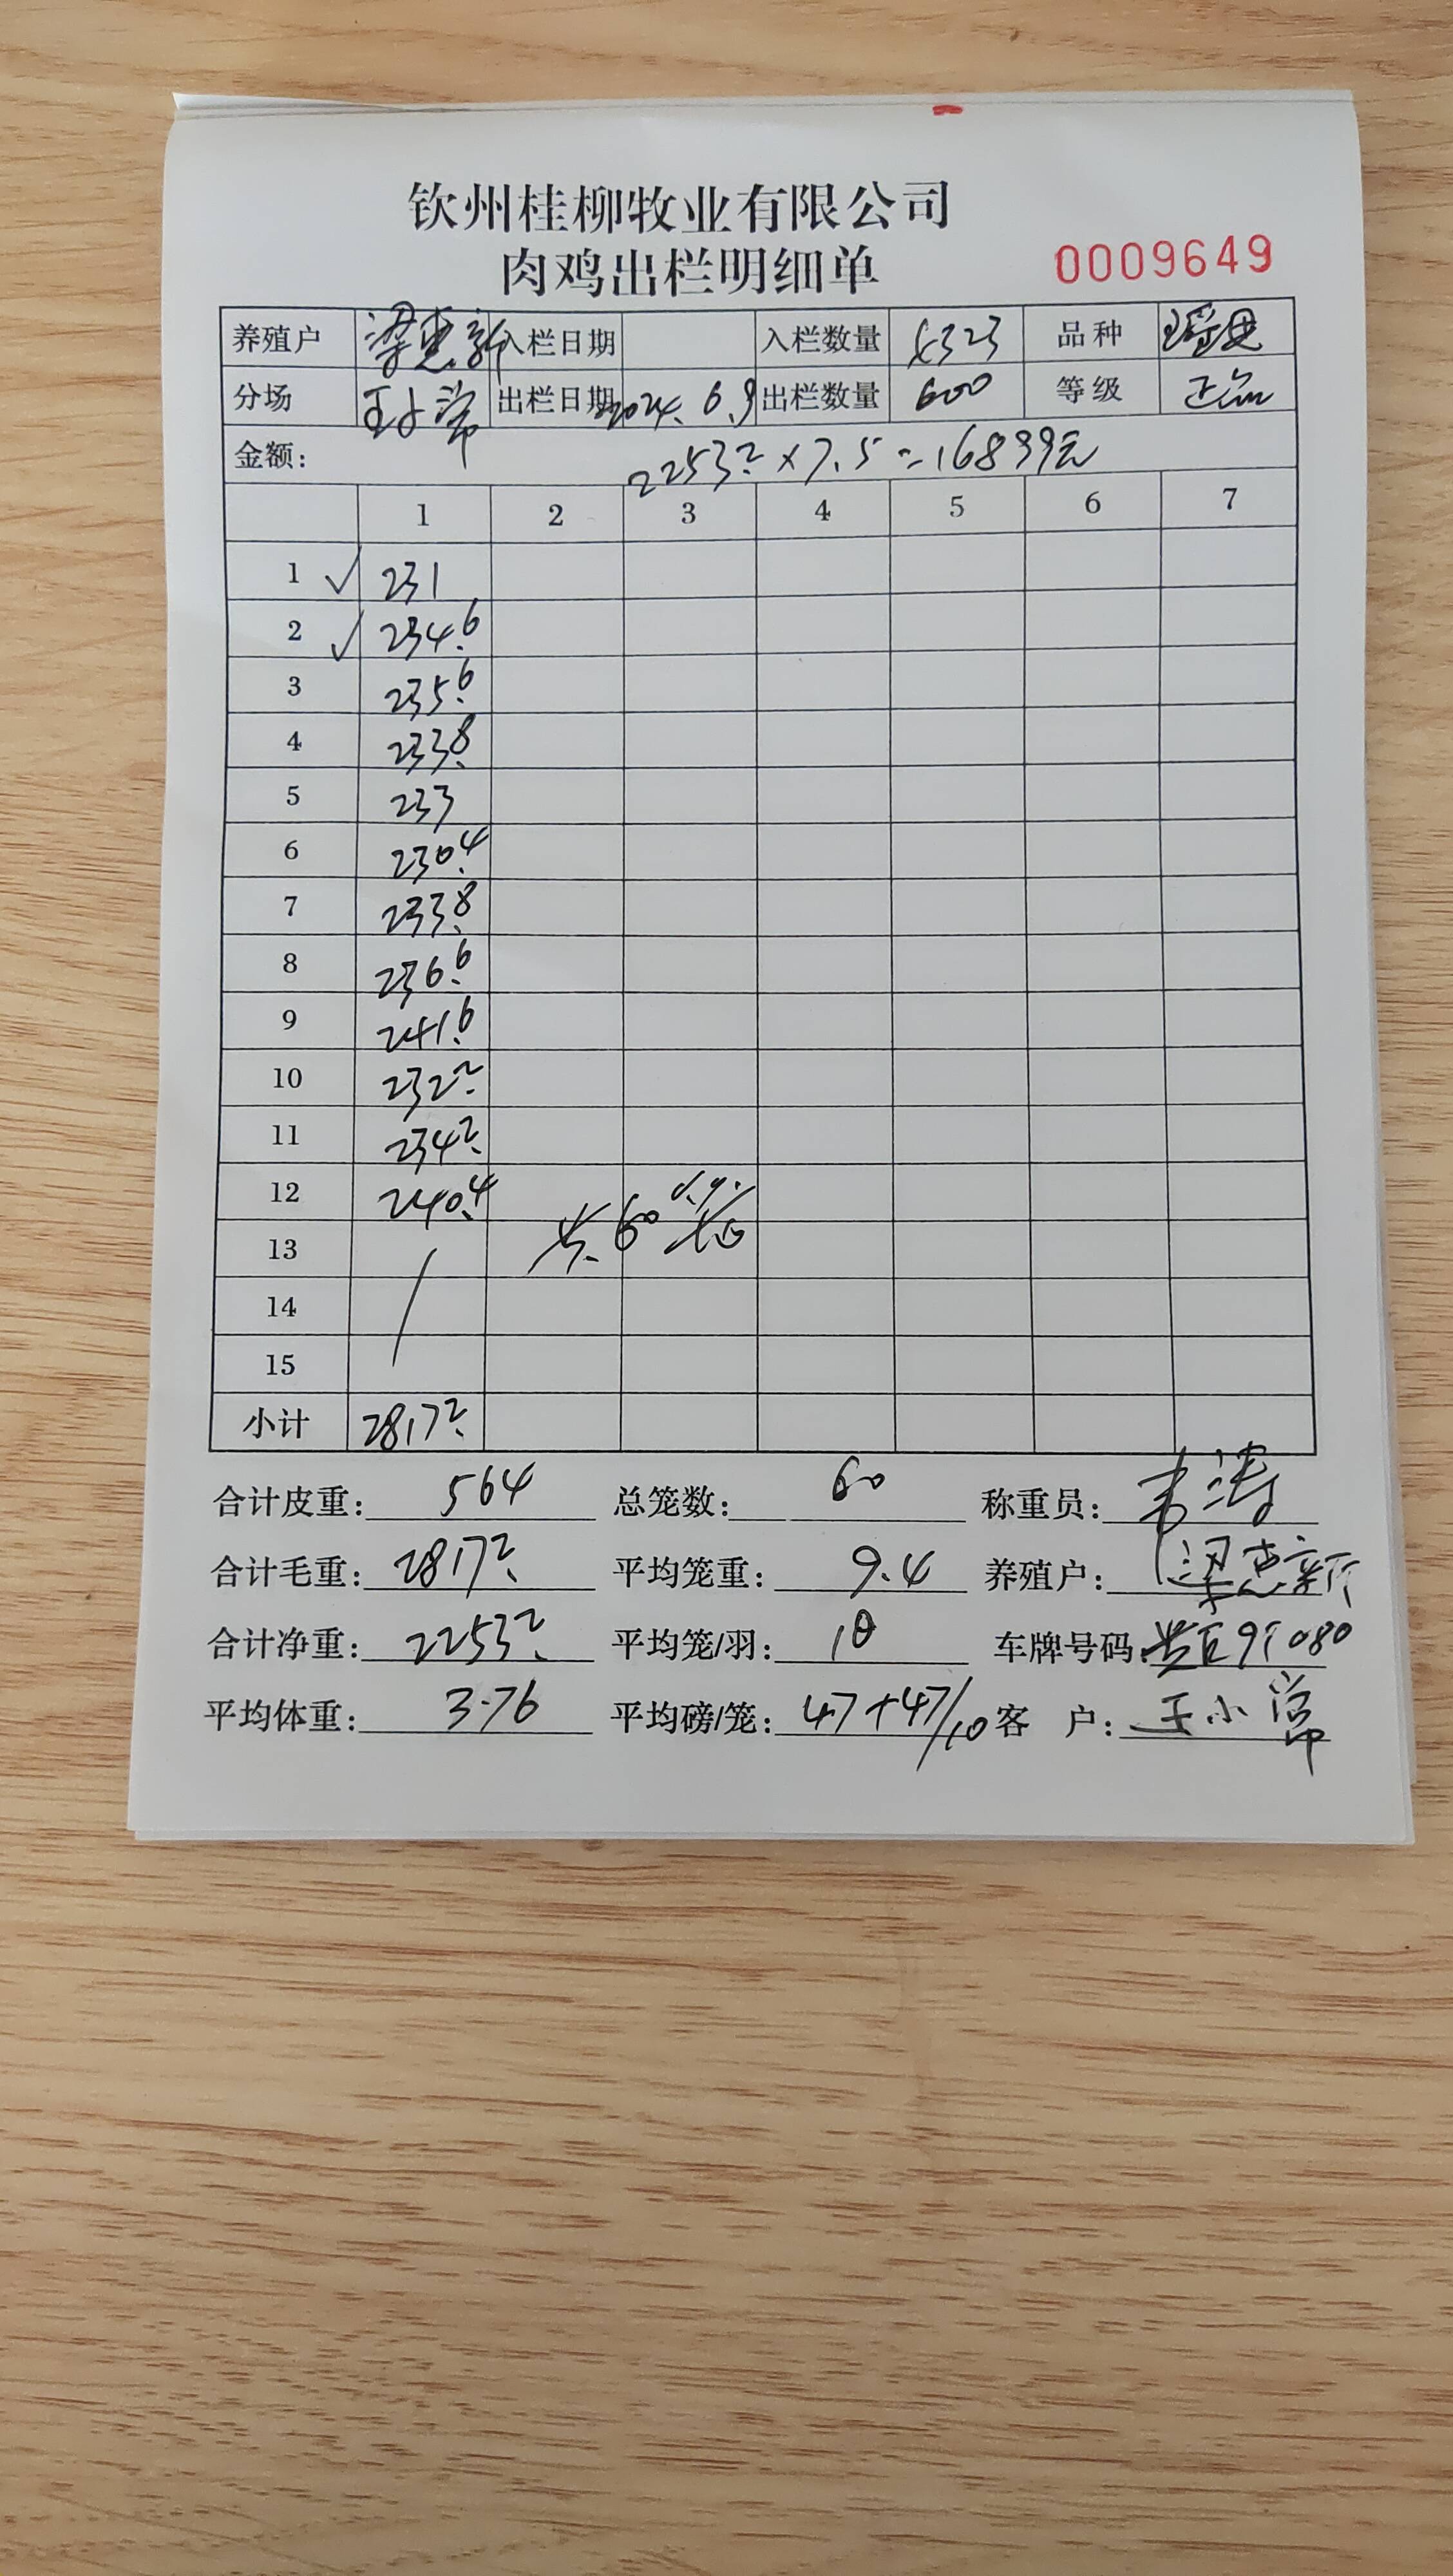 钦州桂柳牧业有限公司
肉鸡出栏明细单
0009649
养殖户 梁惠新 入栏日期 入栏数量 6323 品种 瑶鸡
分场 王小常 出栏日期 2024.6.9 出栏数量 600 等级 正品
金额: 2253.2×7.5=16899元
1 2 3 4 5 6 7
1 ✓ 231
2 ✓ 234.6
3 235.6
4 233.8
5 233
6 230.4
7 233.8
8 236.6
9 241.6
10 232.2
11 234.2
12 240.4 共60笼
13
14
15
小计 2817.2
合计皮重: 564 总笼数: 60 称重员: 韦涛
合计毛重: 2817.2 平均笼重: 9.4 养殖户: 梁惠新
合计净重: 2253.2 平均笼/羽: 10 车牌号码:
平均体重: 3.76 平均磅/笼: 47+47/10 客 户: 王小常